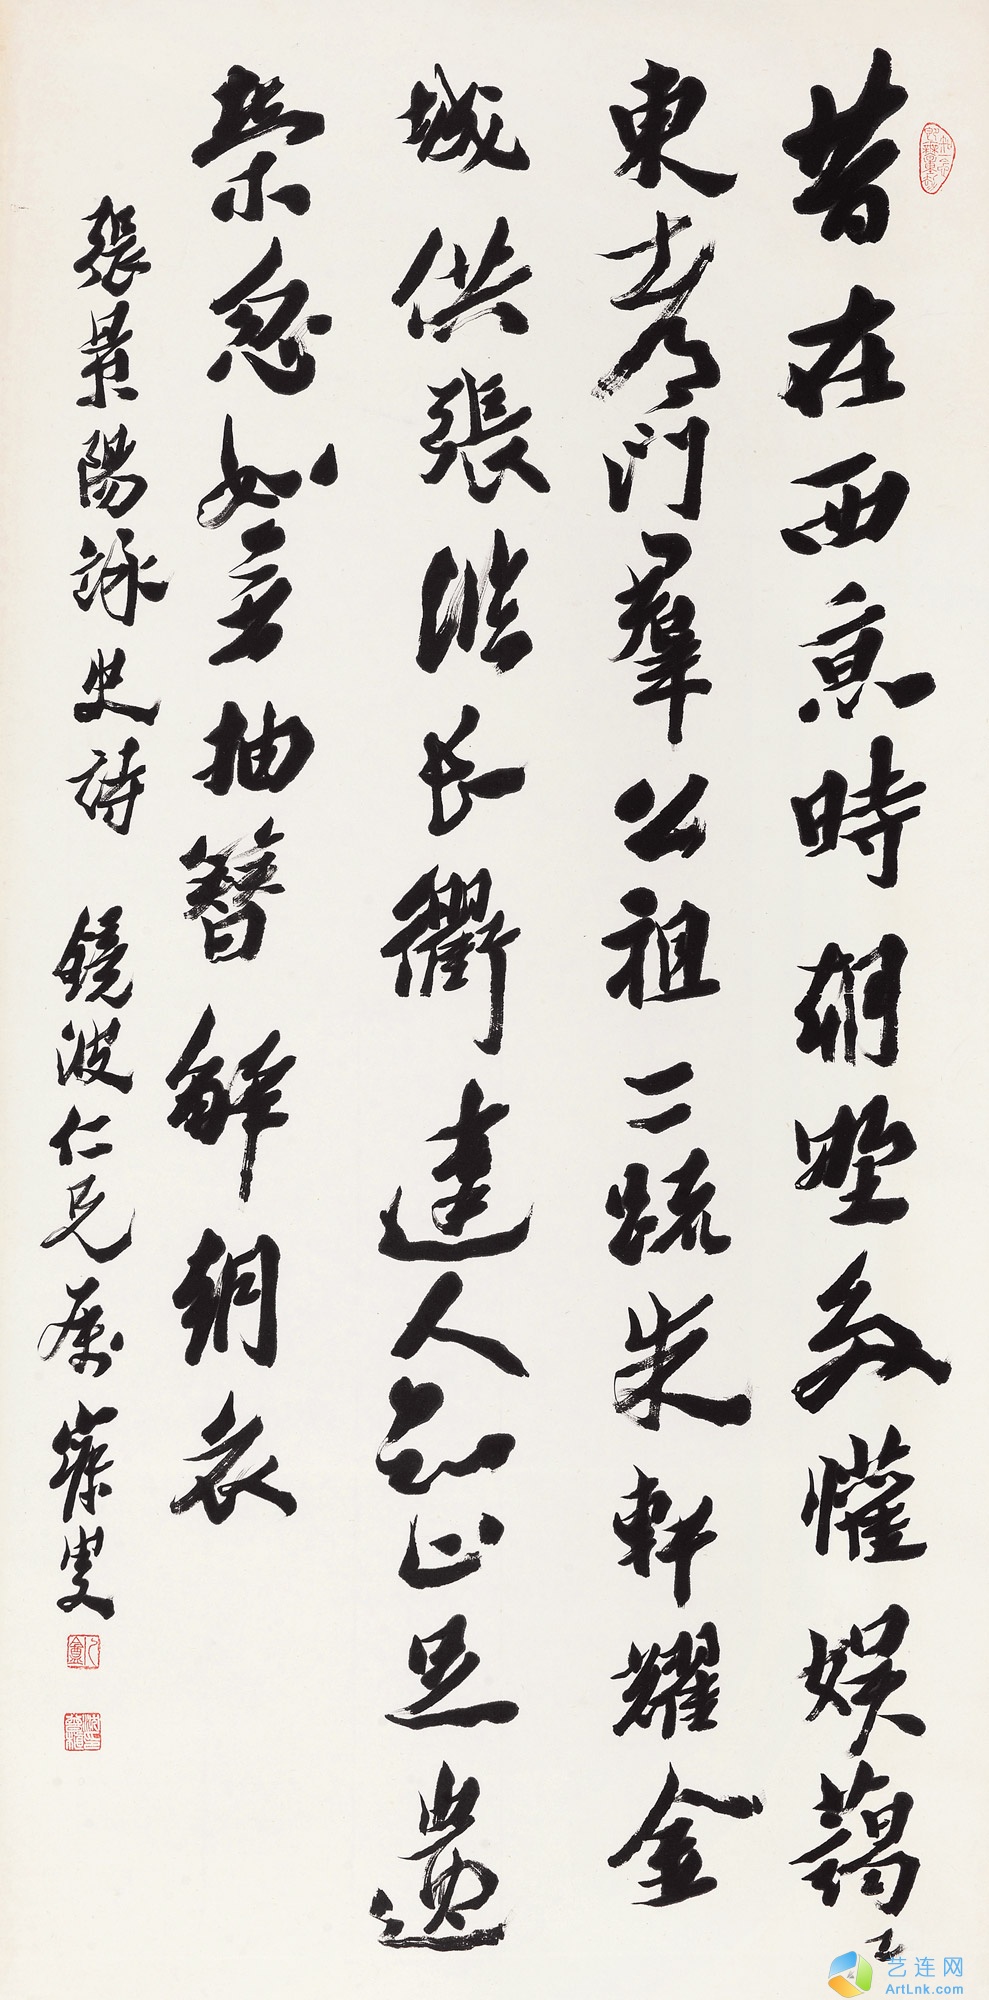 昔在西京時朝野多懽娛藹〻
東都門羣公祖二疏朱軒耀金
城供張臨长衢達人知止足遺
榮忽如無抽簪解朝衣
張景陽詠史詩 鏡波仁兄屬 寐叟
艺连网
ArtLnk.com